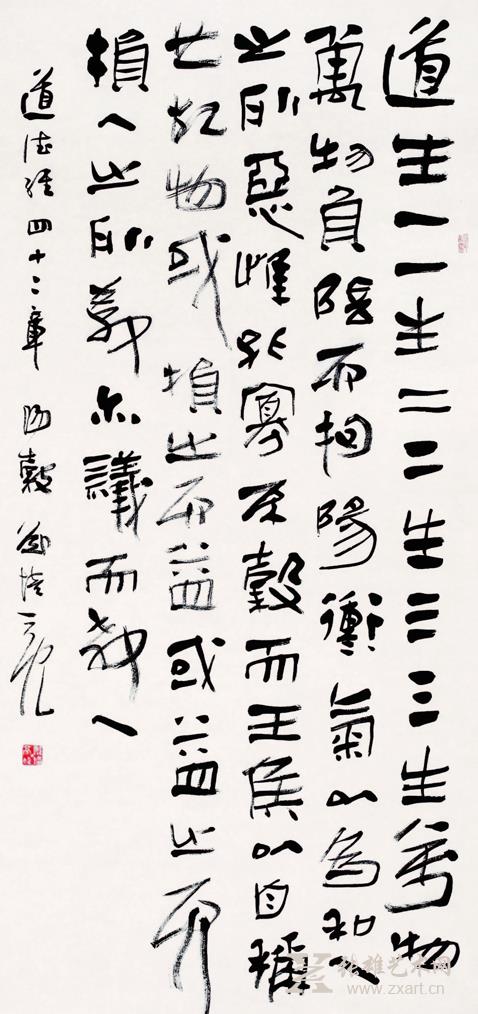 道生一一生二二生三三生萬物
萬物負陰而抱陽衝氣以為和人
之所惡唯孤寡不穀而王侯以自稱
也故物或損之而益或益之而
損人之所教亦議而教人
道德經四十二章
张雄艺术网
www.zxart.cn